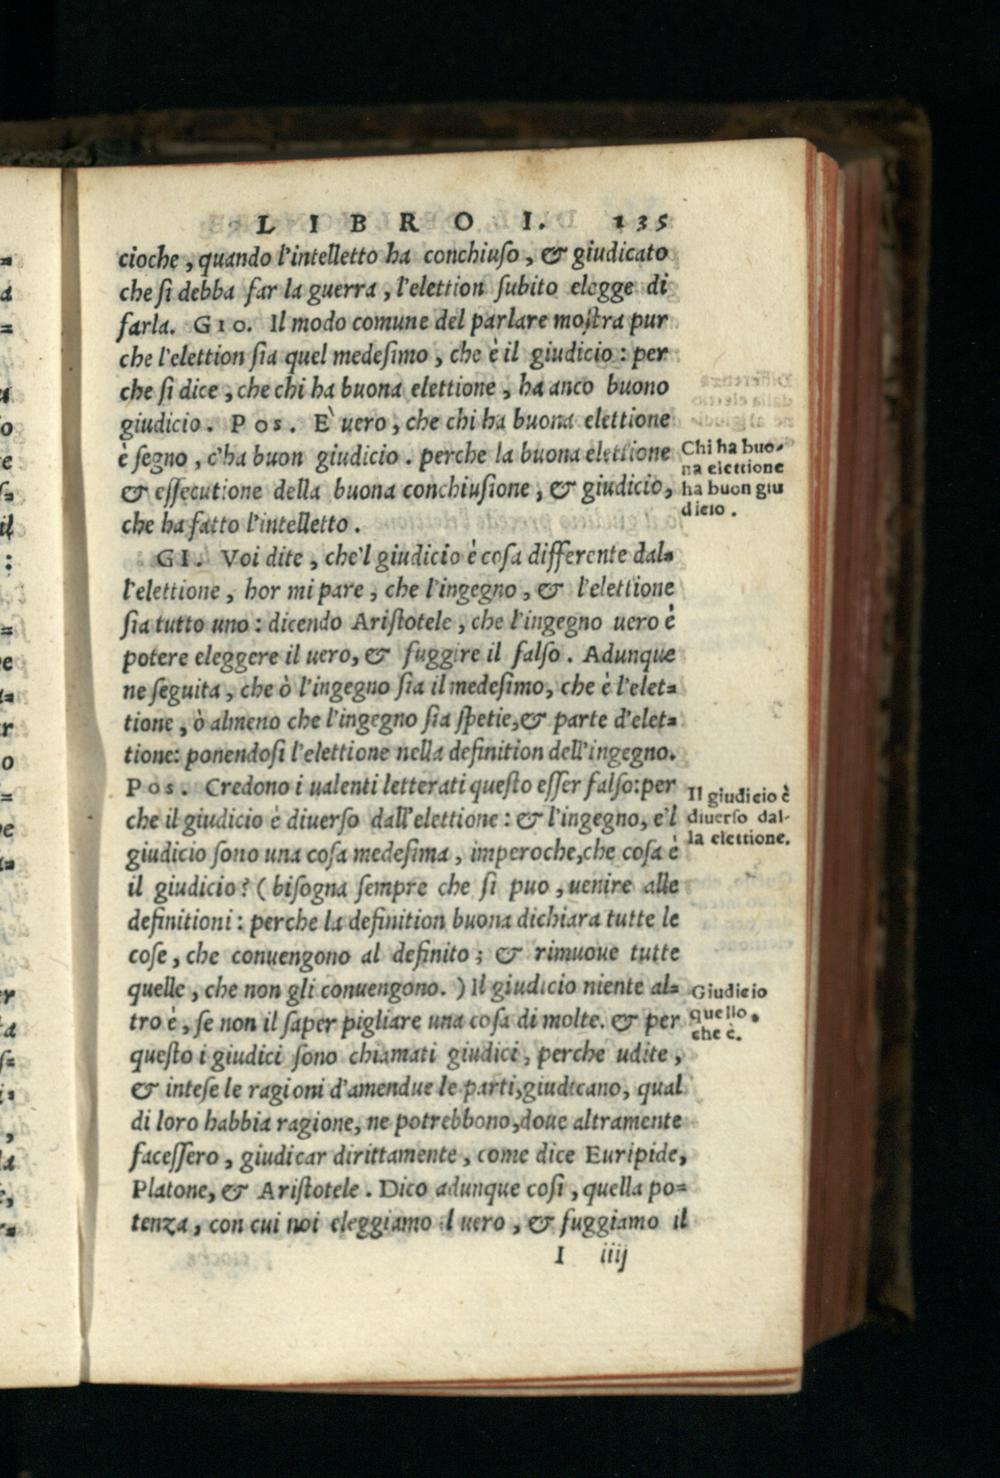 LIBRO I. 135
cioche, quando l'intelletto ha conchiuſo, & giudicato
che ſi debba far la guerra, l'elettion ſubito elegge di
farla. GIO. Il modo comune del parlare moſtra pur
che l'elettion ſia quel medeſimo, che è il giudicio: per
che ſi dice, che chi ha buona elettione, ha anco buono
giudicio. Pos. È uero, che chi ha buona elettione
è ſegno, c'ha buon giudicio. perche la buona elettione
& eſſecutione della buona conchiuſione, & giudicio,
che ha fatto l'intelletto.
Chi ha buo-
na elettione
ha buon giu
dicio.
GI. Voi dite, che'l giudicio è coſa differente dal=
l'elettione, hor mi pare, che l'ingegno, & l'elettione
ſia tutto uno: dicendo Ariſtotele, che l'ingegno uero è
potere eleggere il uero, & fuggire il falſo. Adunque
ne ſeguita, che ò l'ingegno ſia il medeſimo, che è l'elet=
tione, ò almeno che l'ingegno ſia ſpetie, & parte d'elet=
tione: ponendoſi l'elettione nella definition dell'ingegno.
Pos. Credono i ualenti letterati queſto eſſer falſo: per
che il giudicio è diuerſo dall'elettione: & l'ingegno, e'l
giudicio ſono una coſa medeſima, imperoche, che coſa è
il giudicio? (biſogna ſempre che ſi puo, uenire alle
definitioni: perche la definition buona dichiara tutte le
coſe, che conuengono al definito; & rimuoue tutte
quelle, che non gli conuengono.) Il giudicio niente al=
tro è, ſe non il ſaper pigliare una coſa di molte. & per
queſto i giudici ſono chiamati giudici, perche udite,
& inteſe le ragioni d'amendue le parti, giudicano, qual
di loro habbia ragione, ne potrebbono, doue altramente
faceſſero, giudicar dirittamente, come dice Euripide,
Platone, & Ariſtotele. Dico adunque coſi, quella po=
tenza, con cui noi eleggiamo il uero, & fuggiamo il
Il giudicio è
diuerſo dal-
la elettione.
Giudicio
quello,
che è.
I iiij